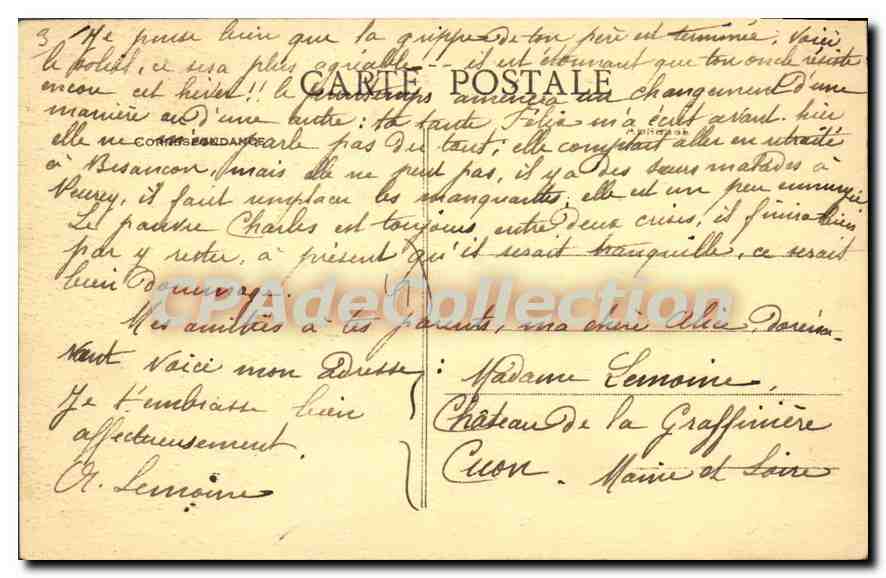 3 Je pense bien que la grippe de ton père est terminée. Voici
le soleil, ce sera plus agréable -- il est étonnant que ton oncle résiste
CARTE POSTALE
encore cet hiver!! le printemps amènera un changement d'une
manière ou d'une autre: ta tante Félie m'a écrit avant-hier
CORRESPONDANCE
ADRESSE
elle ne parle pas du tout; elle comptait aller en retraite
à Besancon, mais elle ne peut pas, il y a des sœurs malades à
Peurey, il faut remplacer les manquantes, elle est un peu ennuyée
Le pauvre Charles est toujours entre deux crises, il finira bien
par y rester, à présent qu'il serait tranquille, ce serait
bien dommage.
CPAdeCollection
Mes amitiés à tes parents, ma chère Alice, Doréna-
vant voici mon adresse :
Madame Lemoine,
Je t'embrasse bien
Château de la Graffinière
affectueusement.
Cuon. Maine et Loire
A. Lemoine